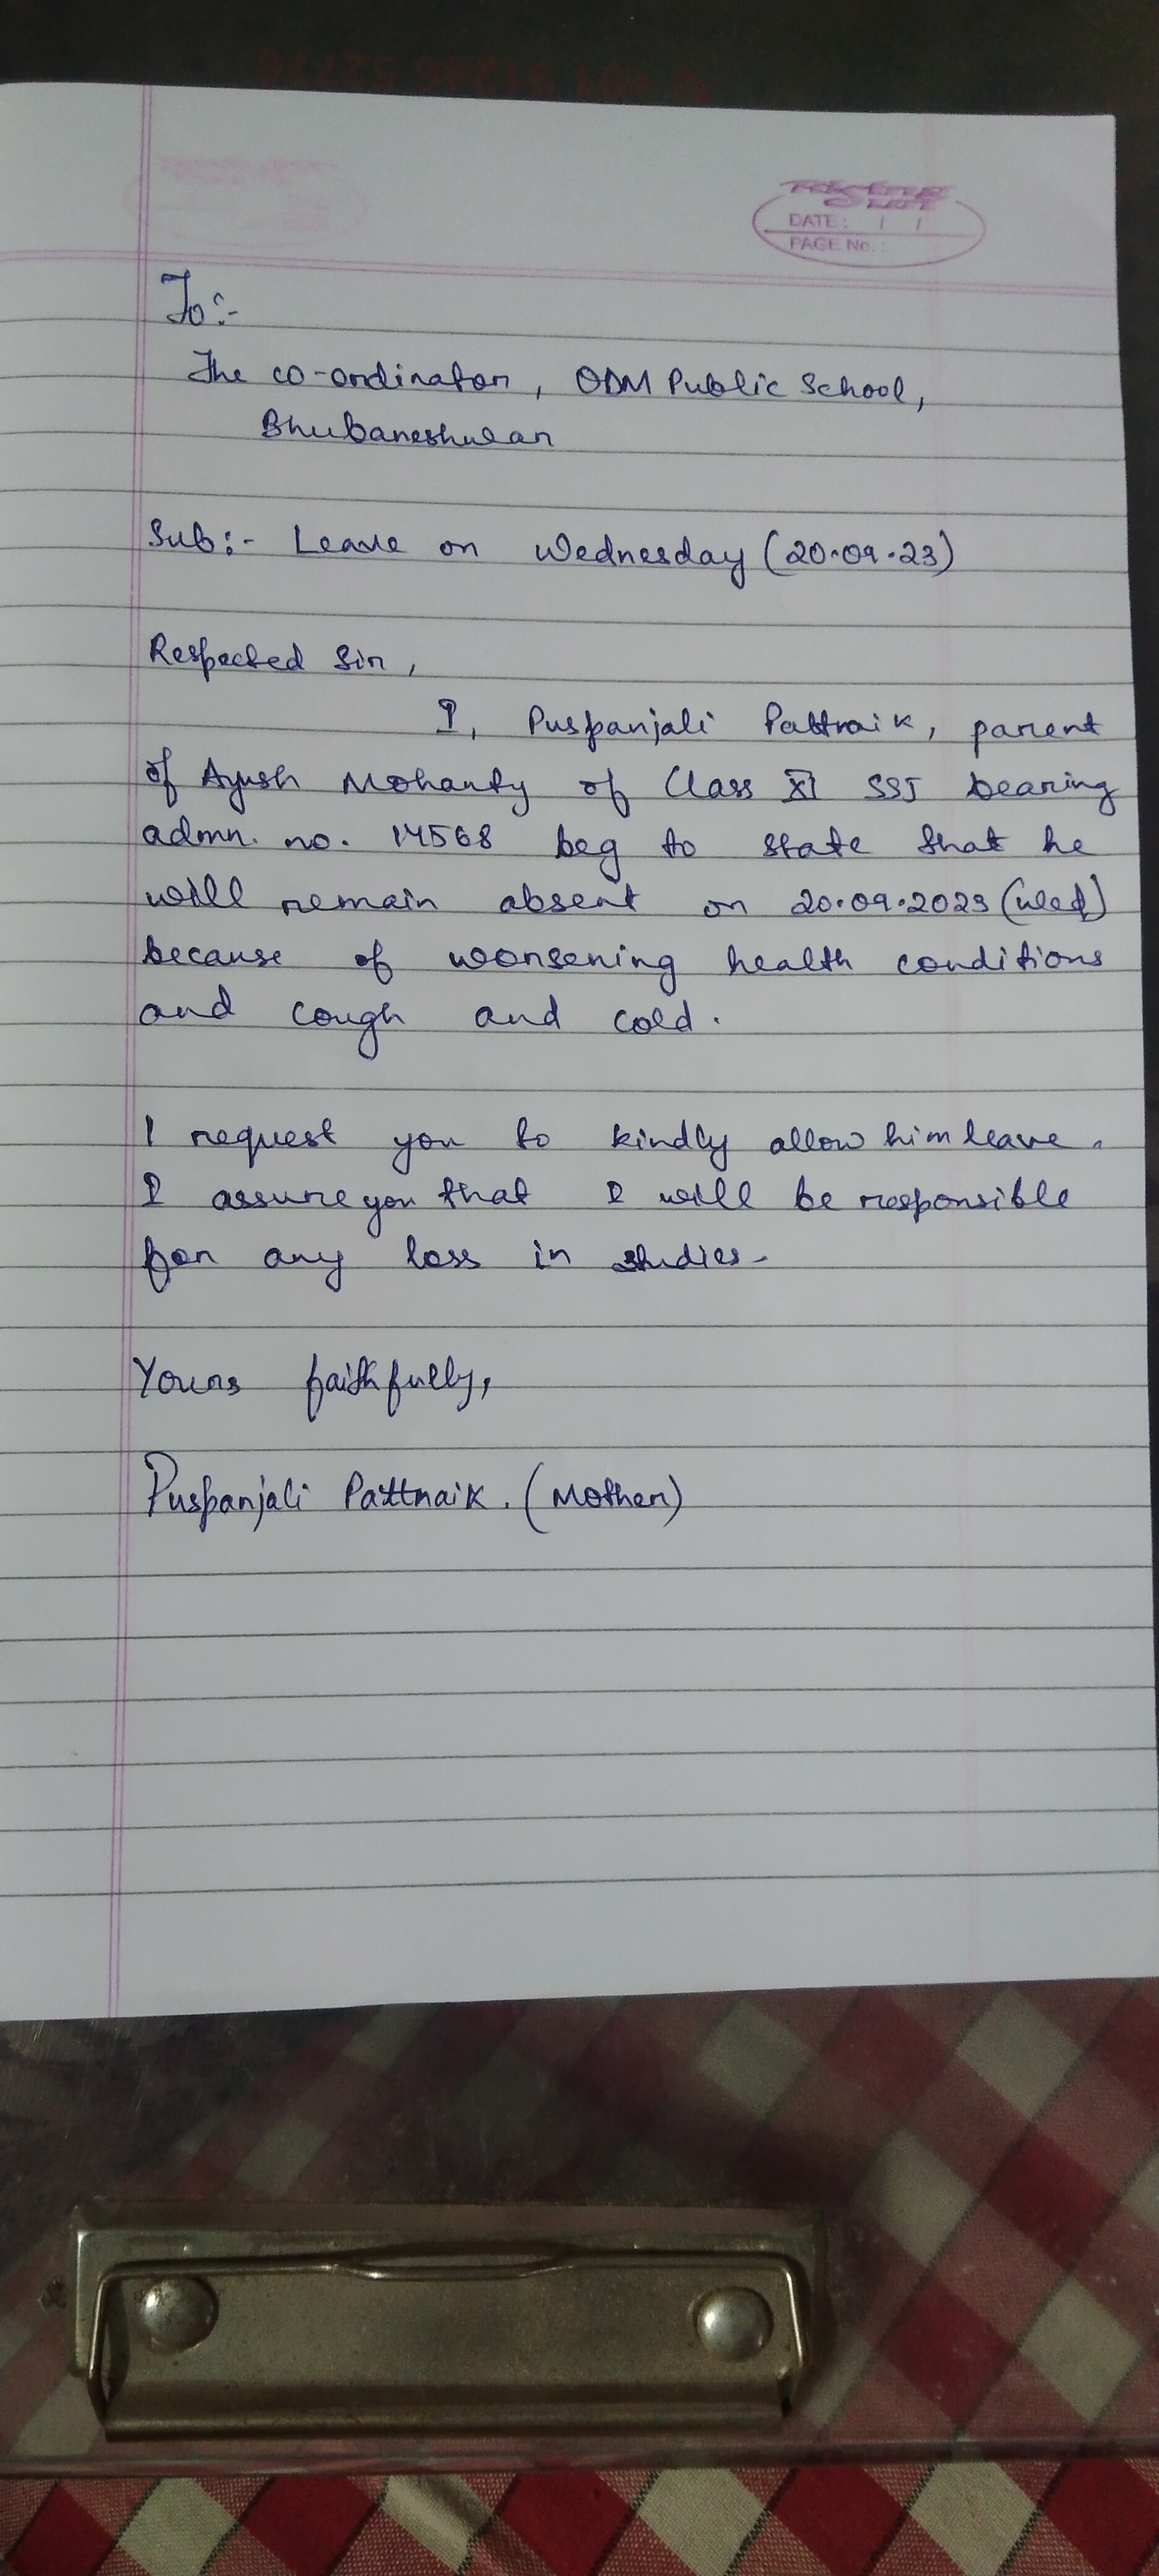 DATE: / /
PAGE No.:
To:-
The co-ordinator, ODM Public School,
Bhubaneshwar
Sub:- Leave on Wednesday (20.09.23)
Respected Sir,
I, Puspanjali Pattnaik, parent
of Ayush Mohanty of Class XI SSJ bearing
admn. no. 14568 beg to state that he
will remain absent on 20.09.2023 (Wed)
because of worsening health conditions
and cough and cold.
I request you to kindly allow him leave.
I assure you that I will be responsible
for any loss in studies.
Yours faithfully,
Puspanjali Pattnaik. (Mother)